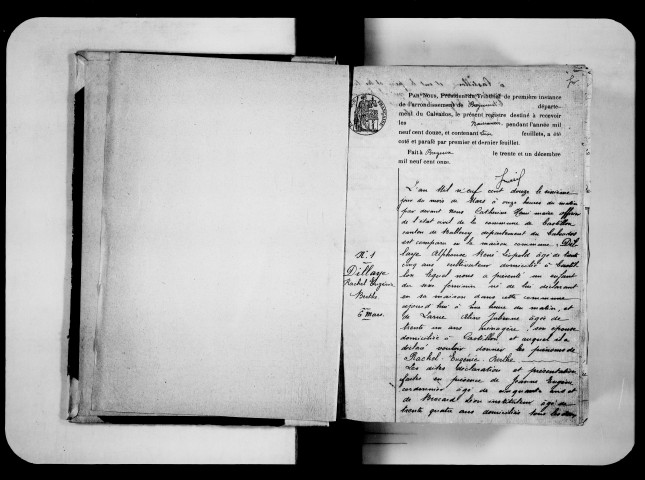 PAR NOUS, Président du Tribunal de première instance
de l'arrondissement de Bayeux départe-
ment du Calvados, le présent registre destiné à recevoir
les Naissances, pendant l'année mil
neuf cent douze, et contenant feuillets, a été
coté et parafé par premier et dernier feuillet.
Fait à Bayeux le trente et un décembre
mil neuf cent onze.
N° 1
Dillaye
Rachel Eugénie
Berthe
6 Mars.
L'an Mil neuf cent douze le sixième
jour du mois de Mars à onze heures du matin
par devant nous Catherine Henri maire officier
de l'état civil de la commune de Castillon
canton de Balleroy département du Calvados
est comparu en la maison commune Dil-
laye Alphonse René Léopold âgé de trente
cinq ans cultivateur domicilié à Castil-
lon lequel nous a présenté un enfant
du sexe féminin né de lui déclarant
en sa maison dans cette commune
aujourd'hui à heures du matin, et
de Larue Aline âgée de
trente un ans ménagère son épouse
domiciliée à Castillon et auquel il a
déclaré vouloir donner les prénoms de
Rachel-Eugénie-Berthe
Les dites déclaration et présentation
faites en présence de Jeanne Eugène
cordonnier âgé de cinquante ans et
de Brocard Léon instituteur âgé de
trente quatre ans domiciliés tous les deux